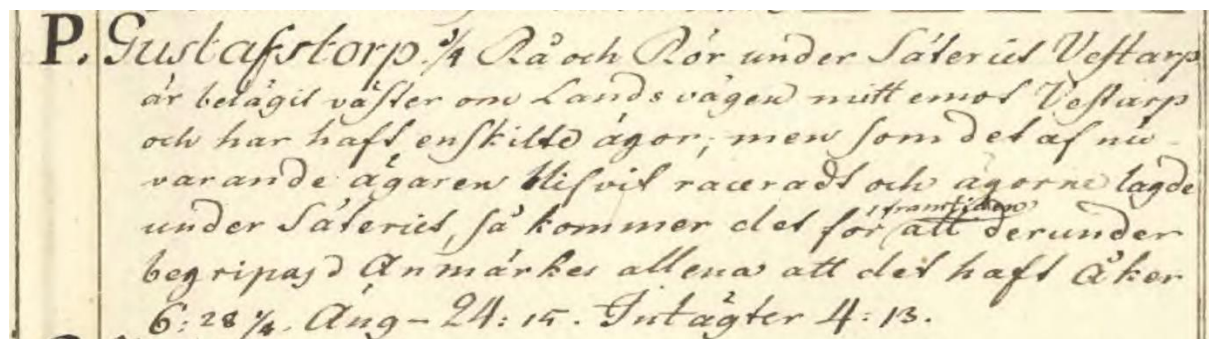 P. Gustafstorp. 1/4 Rå och Rör under Säteriet Vestarp
är belägit väster om Landsvägen mitt emot Vestarp
och har haft enskilte ägor, men som det af nu-
varande ägaren blifvit raceradt och ägorne lagde
under Säteriet, så kommer det för framtiden att derunder
begripas. Anmärkes allena att det haft Åker
6: 28 1/4. Äng - 24: 15. Intägter 4: 13.